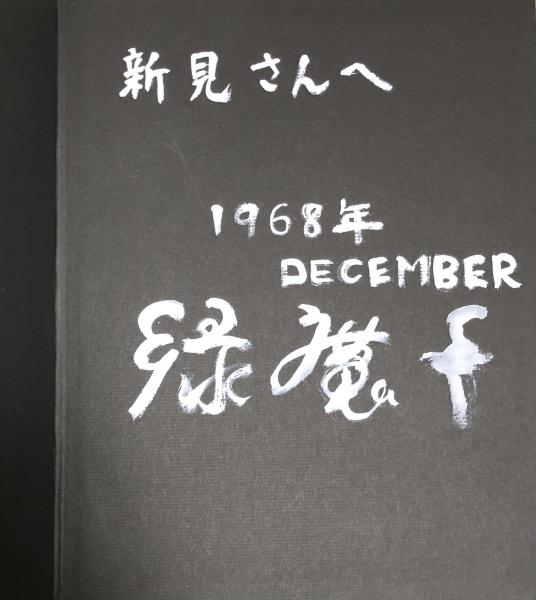 新見さんへ
1968年
DECEMBER
緑魔子